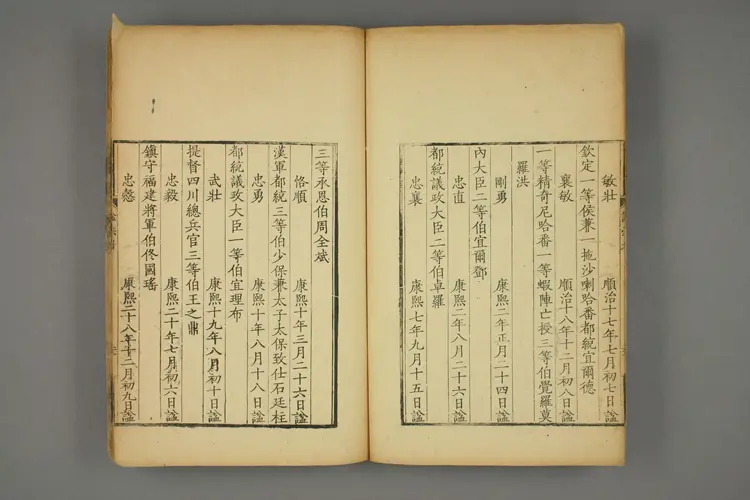 敏壯 順治十七年七月初七日諡
欽定一等侯兼一拖沙喇哈番都統宜爾德
襄敏 順治十八年十二月初八日諡
一等精奇尼哈番一等蝦陣亡授三等伯覺羅莫
羅洪
剛勇 康熙二年正月二十四日諡
內大臣二等伯宜爾鄧
忠直 康熙二年八月二十六日諡
都統議政大臣二等伯卓羅
忠襄 康熙七年九月十五日諡
三等承恩伯周全斌
恪順 康熙十年三月二十六日諡
漢軍都統三等伯少保兼太子太保致仕石廷柱
忠勇 康熙十年八月十八日諡
都統議政大臣一等伯宜理布
武壯 康熙十九年八月初十日諡
提督四川總兵官三等伯王之鼎
忠毅 康熙二十年七月初六日諡
鎮守福建將軍伯佟國瑤
忠愨 康熙二十八年十二月初九日諡